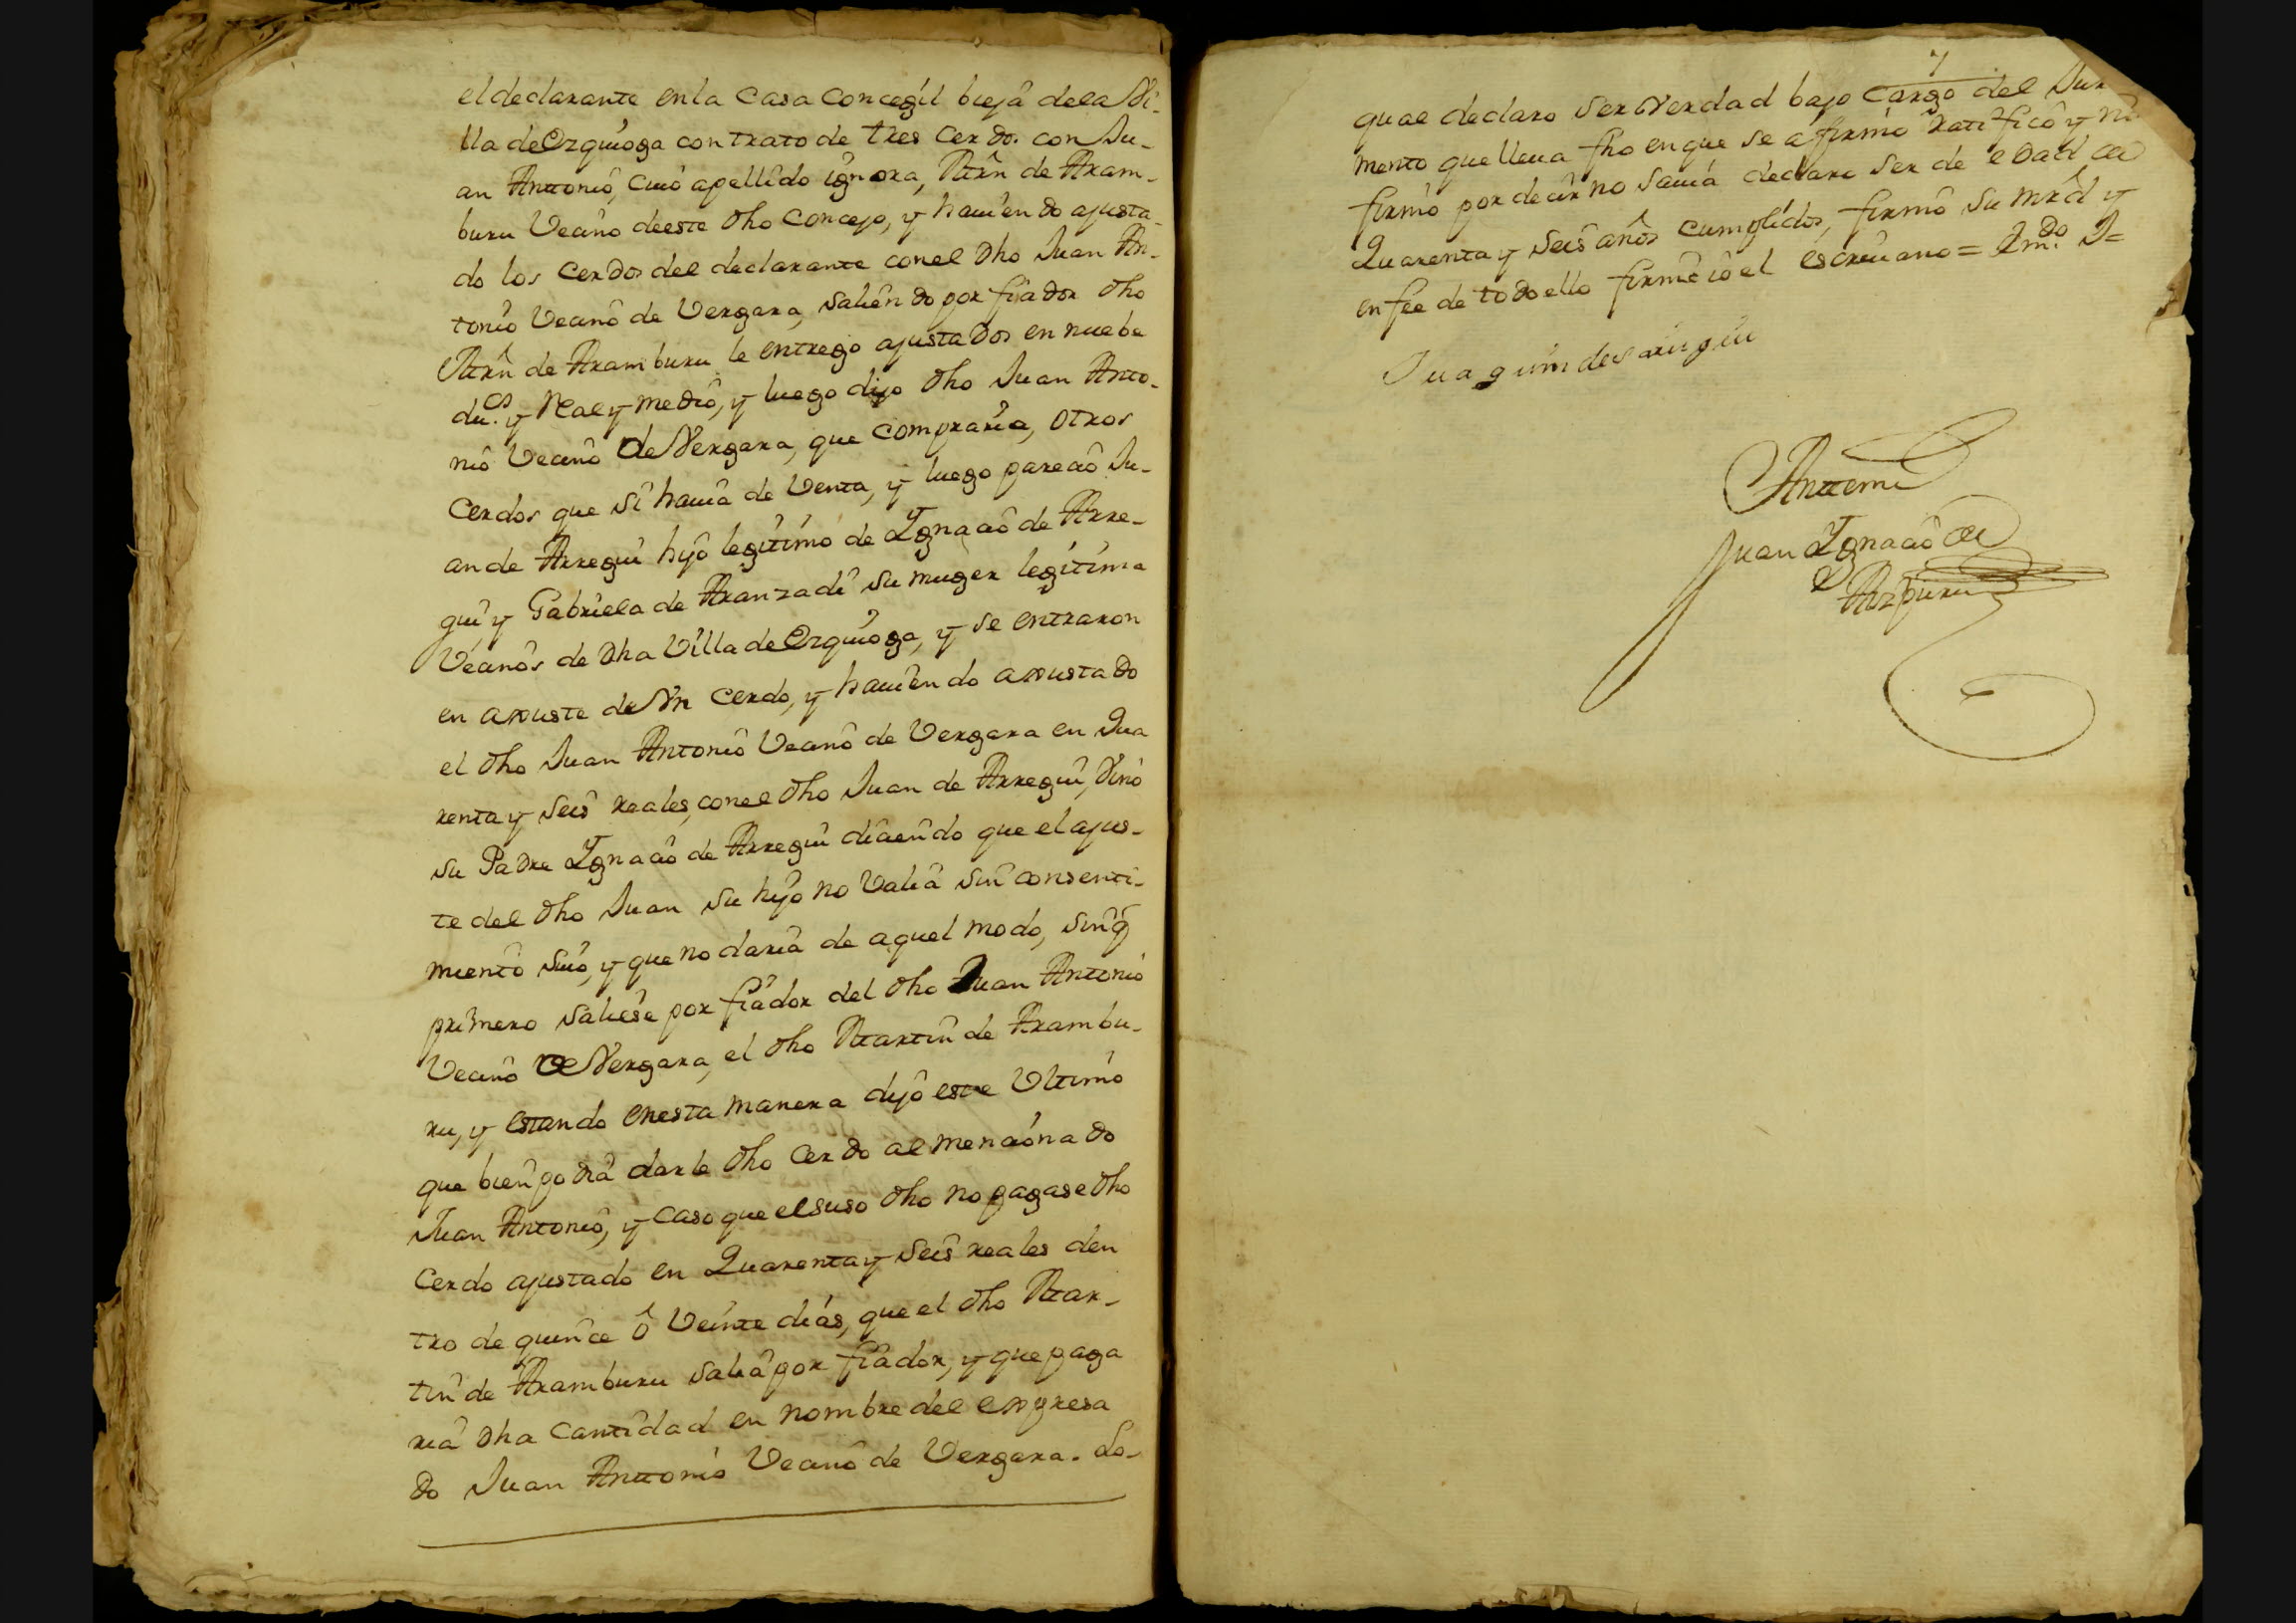 el declarante en la Casa Concegil bieja dela Vi-
lla de Ezquioga contrato de tres Cerdo. con Ju-
an Antonio, cuio apellido ignora, Mrn de Aram-
buru Vecino deeste dho Concejo, y hauiendo ajusta-
do los Cerdos del declarante conel dho Juan An-
tonio Vecino de Vergara, saliendo por fiador dho
Mrn de Aramburu le entrego ajustados en nuebe
du.os y Real y medio, y luego dijo dho Juan Anto-
nio Vecino de Vergara, que compraria, otros
Cerdos que si hauia de Venta, y luego parecio Ju-
an de Arregui hijo legitimo de Ignacio de Arre-
gui, y Gabriela de Aranzadi su muger legitima
Vecinos de dha Villa de Ezquioga, y se entraron
en axuste de Vn Cerdo, y hauiendo axustado
el dho Juan Antonio Vecino de Vergara en Qua
renta y seis reales, conel dho Juan de Arregui, Vino
su Padre Ignacio de Arregui diciendo que el ajus-
te del dho Juan su hijo no Valia sin consenti-
miento suio, y que no daria de aquel modo, sin q̃
primero saliese por fiador del dho Juan Antonio
Vecino de Vergara, el dho Martin de Arambu-
ru, y estando enesta manera dijo este Ultimo
que bien podia darle dho Cerdo al mencionado
Juan Antonio, y caso que elsuso dho no pagase dho
Cerdo ajustado en Quarenta y seis reales den
tro de quince ô Veinte dias, que el dho Mar-
tin de Aramburu salia por fiador, y que paga
ria dha cantidad en nombre del expresa
do Juan Antonio Vecino de Vergara. Lo-
7
qual declaro ser Verdad bajo cargo del Jur
mento que lleua fho en que se afirmo ratifico y no
firmo por decir no sauia declaro ser de edad de
Quarenta y seis años cumplidos, firmo su mrd y
en fee de todo ello firme io el escriuano = Em.do J=
Juaquin de
Antemi
Juan Ignacio de
Aizpuru